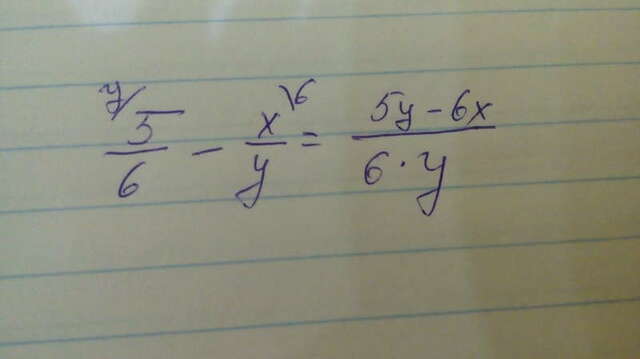 y/ 5/6 − x/y \6 = (5y − 6x)/(6 · y)